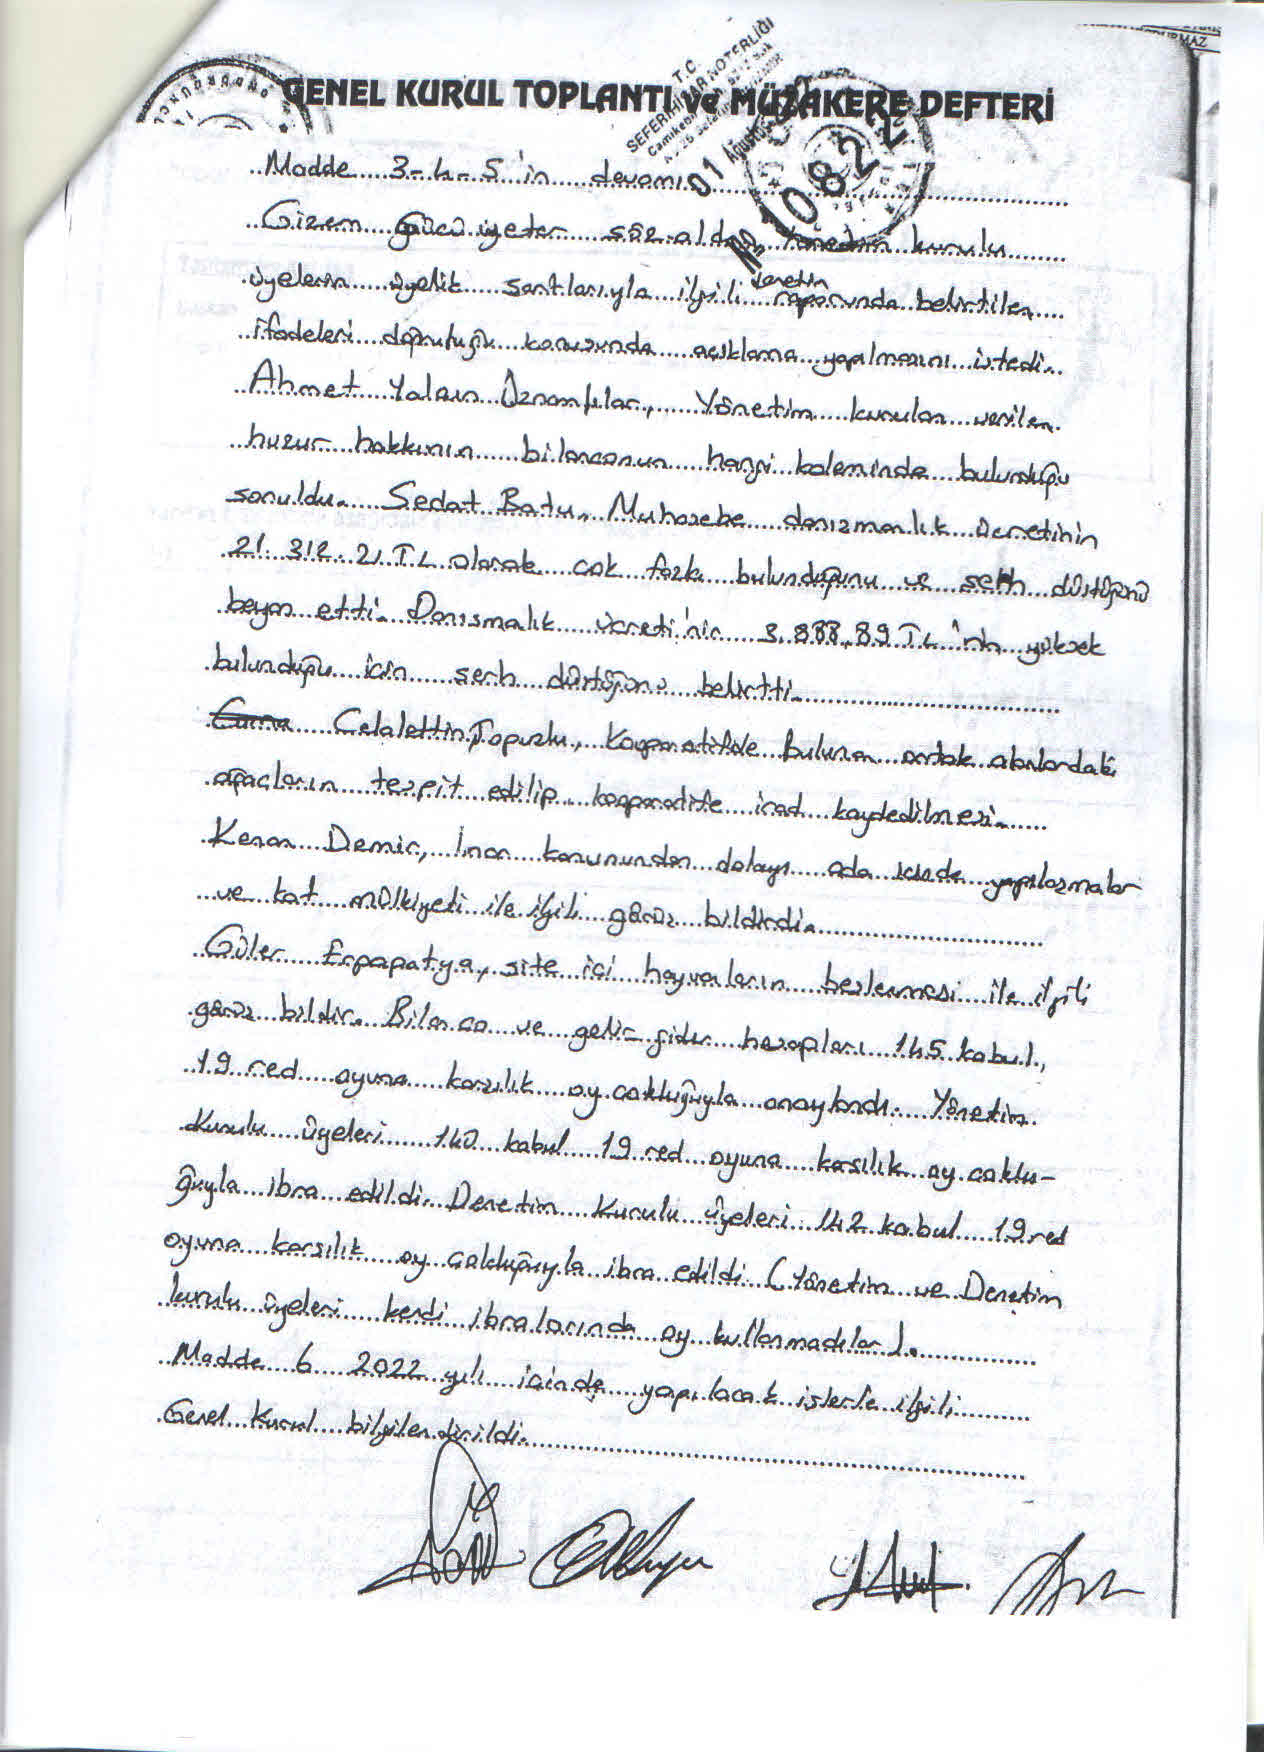 GENEL KURUL TOPLANTI ve MÜZAKERE DEFTERİ
T.C.
SEFERİHİSAR NOTERLİĞİ
01 Ağustos
No 10822
Madde 3-4-5'in devamı
Gizem Gücüyeter söz aldı. Yönetim kurulu
üyelerin üyelik şartlarıyla ilgili denetim raporunda belirtilen
ifadeleri doğruluğu konusunda açıklama yapılmasını istedi.
Ahmet Yalçın Yönetim kuruluna verilen
huzur hakkının bilançonun hangi kaleminde bulunduğu
soruldu. Sedat Batu, Muhasebe danışmanlık ücretinin
21.312.21 TL olarak çok fazla bulunduğunu ve şerh düştüğünü
beyan etti. Danışmalık ücreti'nin 3.888,89 TL'nin yüksek
bulunduğu için şerh düştüğünü belirtti.
Celalettin Topuzlu, Kooperatifde bulunan ortak alanlardaki
ağaçların tespit edilip kooperatife irad kaydedilmesi.
Kenan Demir, İmar kanunundan dolayı ada içinde yapılaşmalar
ve kat mülkiyeti ile ilgili görüş bildirdi.
Güler Erpapatya, site içi hayvanların beslenmesi ile ilgili
görüş bildir. Bilanço ve gelir-gider hesapları 145 kabul,
19 red oyuna karşılık oy çokluğuyla onaylandı. Yönetim
Kurulu üyeleri 140 kabul 19 red oyuna kaşılık oy çoklu-
ğuyla ibra edildi. Denetim Kurulu üyeleri 142 kabul 19 red
oyuna karşılık oy çokluğuyla ibra edildi (Yönetim ve Denetim
kurulu üyeleri kendi ibralarında oy kullanmadılar).
Madde 6 2022 yılı içinde yapılacak işlerle ilgili
Genel Kurul bilgilendirildi.